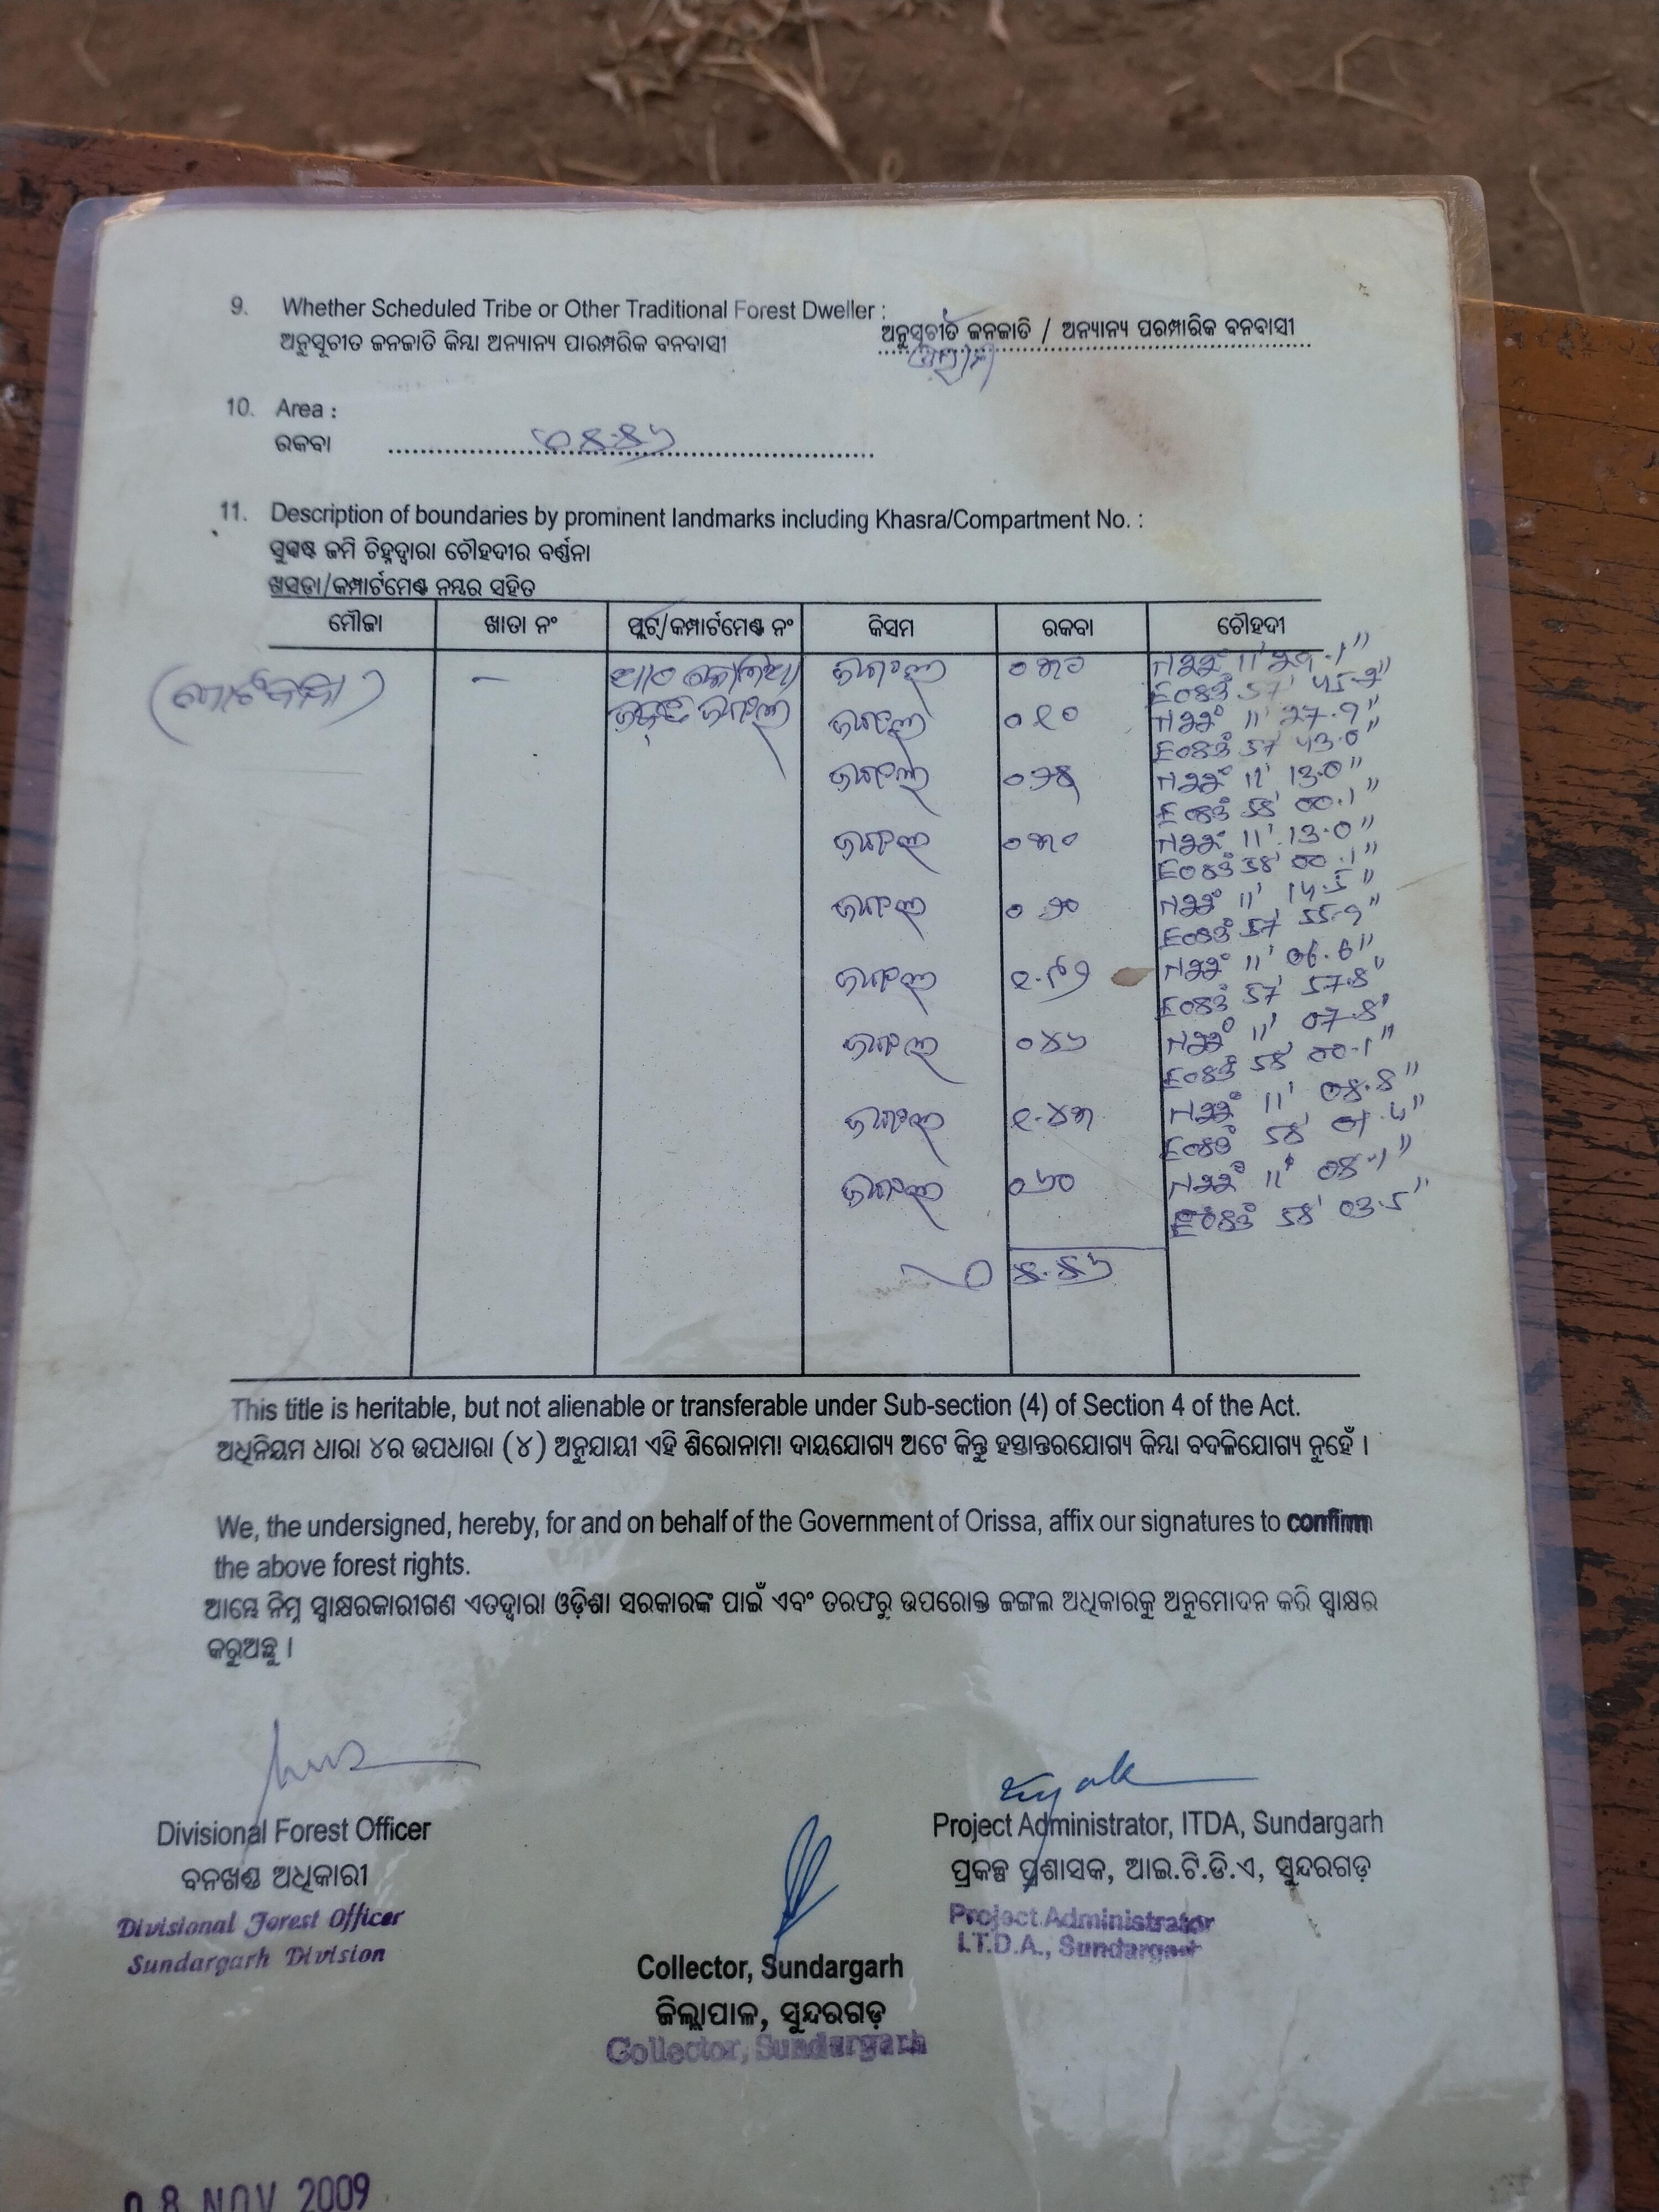 9. Whether Scheduled Tribe or Other Traditional Forest Dweller :
ଅନୁସୂଚୀତ ଜନଜାତି କିମ୍ବା ଅନ୍ୟାନ୍ୟ ପାରମ୍ପରିକ ବନବାସୀ
ଅନୁସୂଚୀତ ଜନଜାତି / ଅନ୍ୟାନ୍ୟ ପରମ୍ପାରିକ ବନବାସୀ
10. Area :
ରକବା
11. Description of boundaries by prominent landmarks including Khasra/Compartment No. :
ସୁସ୍ପଷ୍ଟ ଜମି ଚିହ୍ନଦ୍ୱାରା ଚୌହଦୀର ବର୍ଣ୍ଣନା
ଖସଡା/କମ୍ପାର୍ଟମେଣ୍ଟ ନମ୍ବର ସହିତ
ମୌଜା ଖାତା ନଂ ପ୍ଲଟ୍/କମ୍ପାର୍ଟମେଣ୍ଟ ନଂ କିସମ ରକବା ଚୌହଦୀ
ଜଙ୍ଗଲ ୦.୩୦
ଜଙ୍ଗଲ ୦.୧୦ N22° 11' 27.9"
E083° 57' 43.0"
ଜଙ୍ଗଲ N22° 11' 13.0"
E083° 58' 00.1"
ଜଙ୍ଗଲ ୦.୩୦ N22° 11' 13.0"
E083° 58' 00.1"
ଜଙ୍ଗଲ ୦.୨୦ N22° 11' 14.5"
E083° 57' 55.9"
ଜଙ୍ଗଲ N22° 11' 06.6"
E083° 57' 57.8"
ଜଙ୍ଗଲ ୦.୪୬ N22° 11' 07.8"
E083° 58' 00.1"
ଜଙ୍ଗଲ ୧.୪୩ N22° 11' 08.8"
E083° 58'
ଜଙ୍ଗଲ ୦.୬୦ N22° 11' 08.1"
E083° 58' 03.5"
This title is heritable, but not alienable or transferable under Sub-section (4) of Section 4 of the Act.
ଅଧିନିୟମ ଧାରା ୪ର ଉପଧାରା (୪) ଅନୁଯାୟୀ ଏହି ଶିରୋନାମା ଦାୟଯୋଗ୍ୟ ଅଟେ କିନ୍ତୁ ହସ୍ତାନ୍ତରଯୋଗ୍ୟ କିମ୍ବା ବଦଳିଯୋଗ୍ୟ ନୁହେଁ ।
We, the undersigned, hereby, for and on behalf of the Government of Orissa, affix our signatures to confirm
the above forest rights.
ଆମ୍ଭେ ନିମ୍ନ ସ୍ୱାକ୍ଷରକାରୀଗଣ ଏତଦ୍ୱାରା ଓଡ଼ିଶା ସରକାରଙ୍କ ପାଇଁ ଏବଂ ତରଫରୁ ଉପରୋକ୍ତ ଜଙ୍ଗଲ ଅଧିକାରକୁ ଅନୁମୋଦନ କରି ସ୍ୱାକ୍ଷର
କରୁଅଛୁ ।
Divisional Forest Officer
ବନଖଣ୍ଡ ଅଧିକାରୀ
Divisional Forest Officer
Sundargarh Division
Project Administrator, ITDA, Sundargarh
ପ୍ରକଳ୍ପ ପ୍ରଶାସକ, ଆଇ.ଟି.ଡି.ଏ, ସୁନ୍ଦରଗଡ଼
Project Administrator
I.T.D.A., Sundargarh
Collector, Sundargarh
ଜିଲ୍ଲାପାଳ, ସୁନ୍ଦରଗଡ଼
Collector, Sundargarh
08 NOV 2009